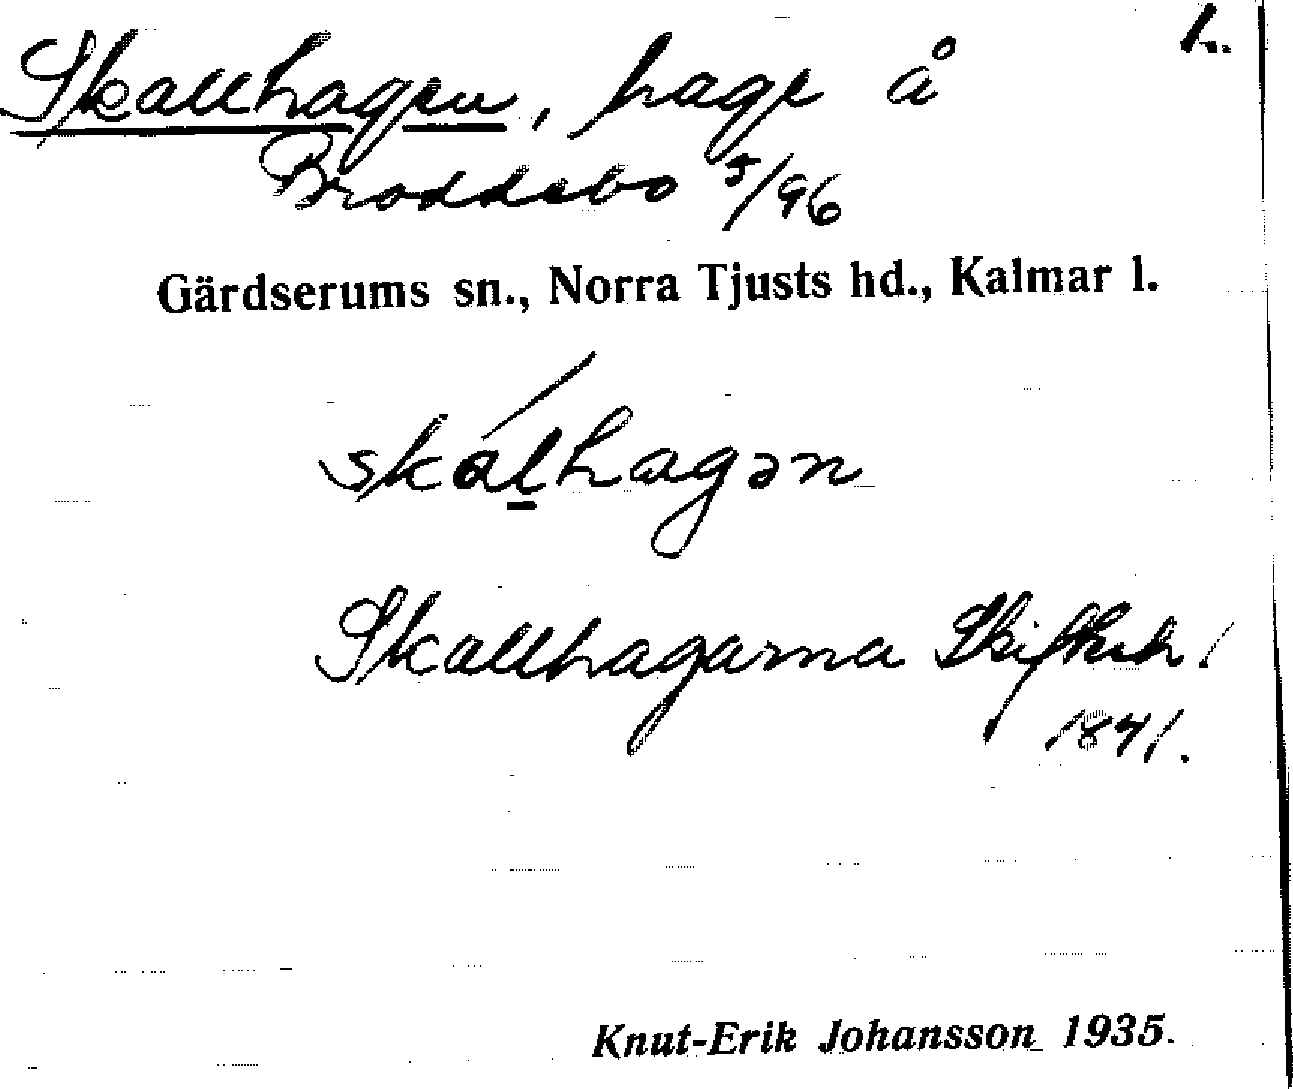 1.
Skallhagen, hage å
Broddebo 5/96
Gärdserums sn., Norra Tjusts hd., Kalmar l.
skálhagən
Skallhagarna
1841.
Knut-Erik Johansson 1935.